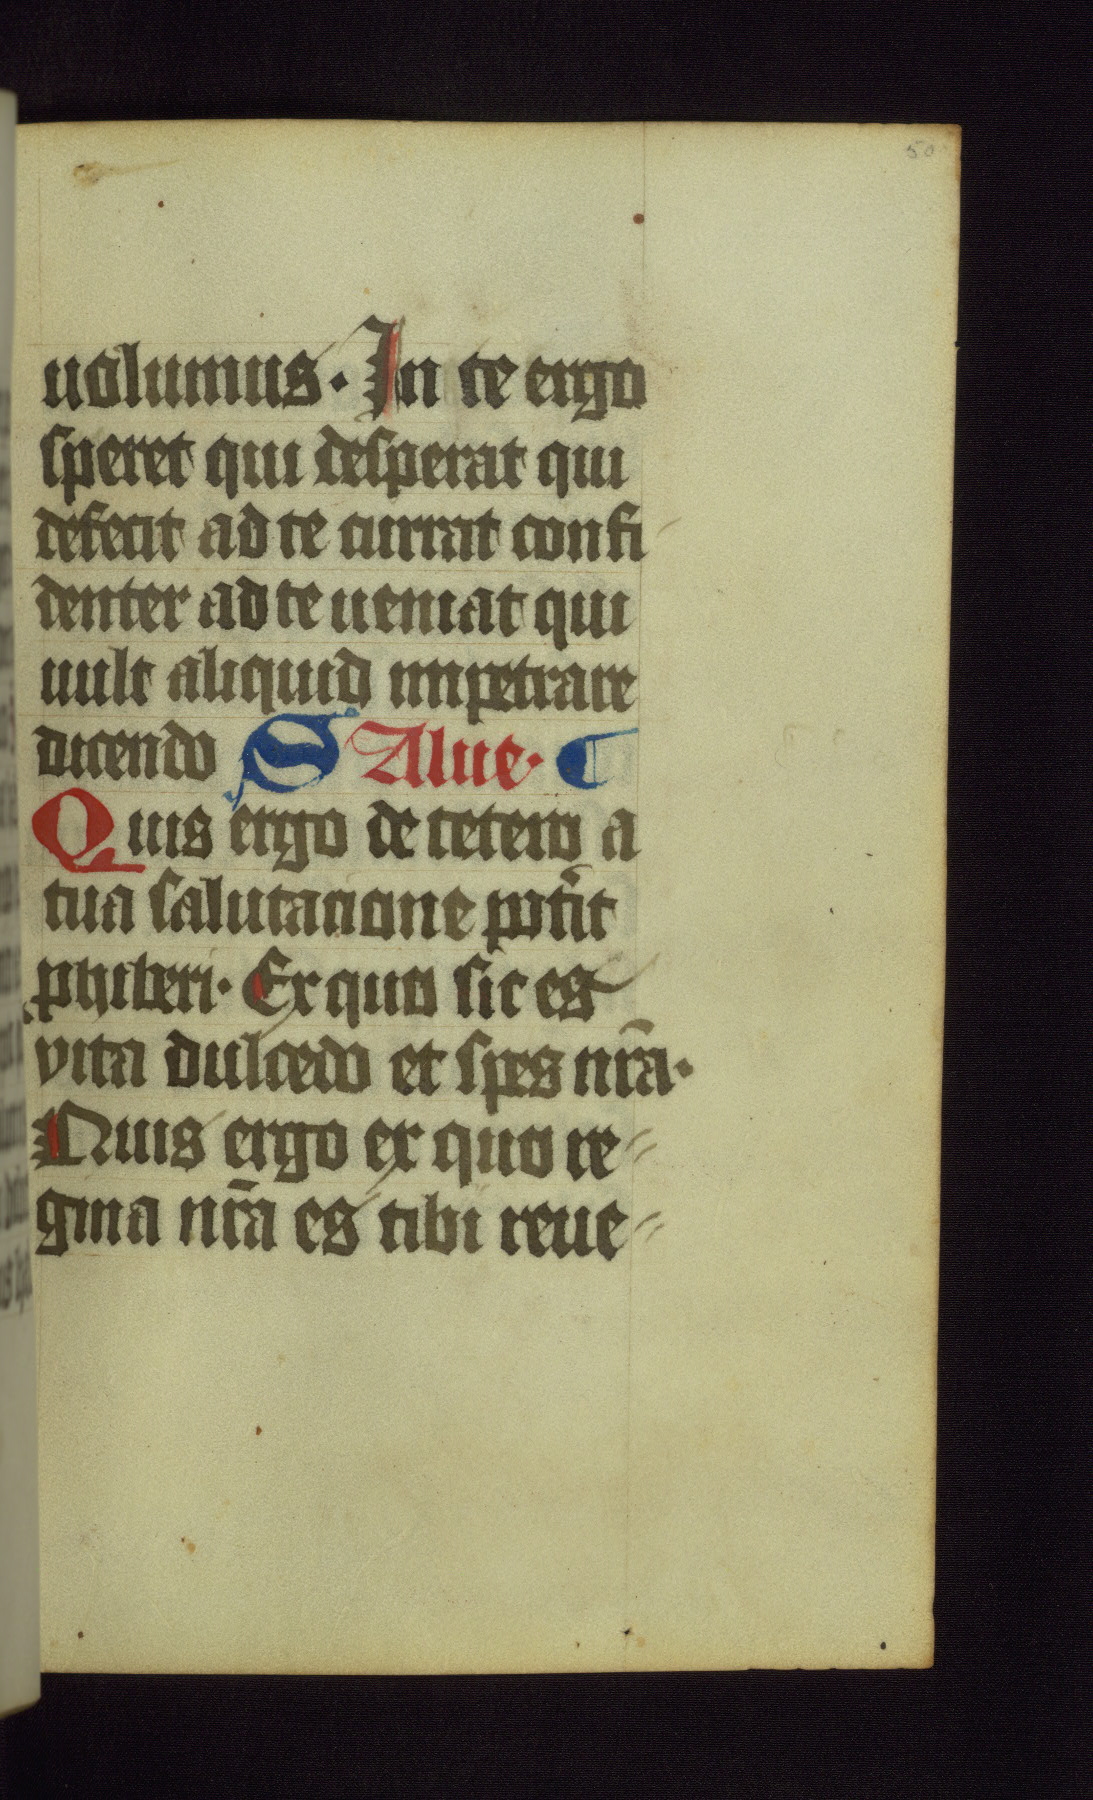 50
uolumus. In te ergo
speret qui desperat qui
defecit ad te currat confi
denter ad te ueniat qui
uult aliquid impetrare
dicendo SAlue. ¶
Quis ergo de cetero a
tua salutacione pot̄it
phiberi. Ex quo sic es
vita dulcedo et spes nr̄a.
Quis ergo ex quo re
gina nr̄a es tibi reue